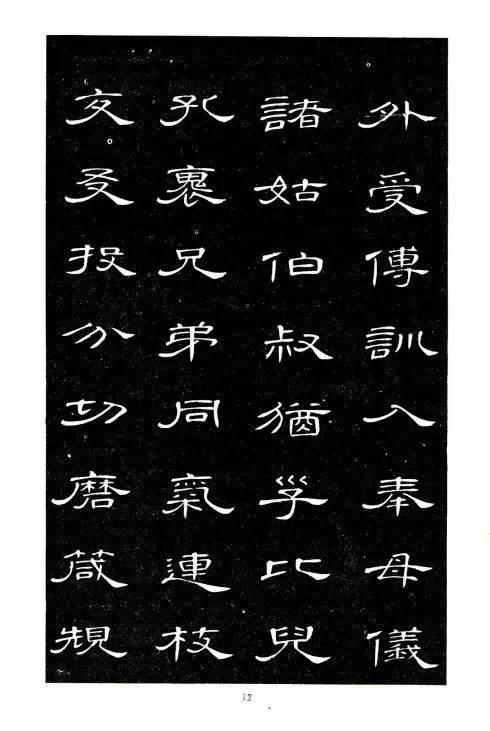 外受傅訓入奉母儀
諸姑伯叔猶子比兒
孔裏兄弟同氣連枝
交友投分切磨箴規
12